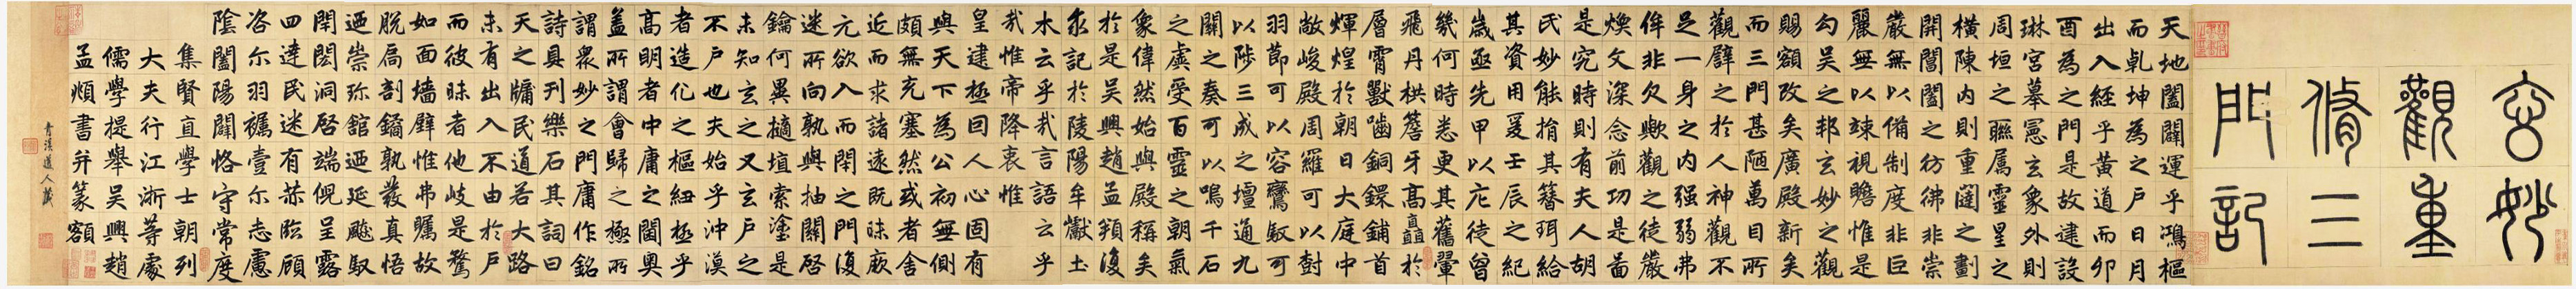 玄妙
觀重
脩三
門記
天地闔闢運乎鴻樞
而乹坤為之戶日月
出入經乎黃道而夘
酉為之門是故建設
琳宮摹憲玄象外則
周垣之聯属靈星之
橫陳內則重闥之劃
開閶闔之彷彿非崇
嚴無以備制度非巨
麗無以竦視瞻惟是
勾吳之邦玄妙之觀
賜額改矣廣殿新矣
而三門甚陋萬目所
觀譬之於人神觀不
足一身之內强弱弗
侔非欠歟觀之徒嚴
煥文深念前功是啚
是究時則有夫人胡
氏妙能捐其簪珥給
其資用爰壬辰之紀
歲亟先甲以庀徒曾
幾何時悉更其舊翬
飛丹栱簷牙高矗於
層霄獸嚙銅鐶鋪首
輝煌於朝日大庭中
敞峻殿周羅可以樹
羽莭可以容鸞馭可
以陟三成之壇通九
關之奏可以鳴千石
之虡受百靈之朝氣
象偉然始與殿稱矣
於是吳興趙孟頫復
求記於陵陽牟巘土
木云乎哉言語云乎
哉惟帝降衷惟
皇建極回人心固有
與天下為公初無側
頗無充塞然或者舍
近而求諸遠既昧厥
元欲入而閉之門復
迷所向孰與抽關啓
鑰何異擿埴索塗是
未知玄之又玄戶之
不戶也夫始乎沖漠
者造化之樞紐極乎
高明者中庸之閫奧
盖所謂會歸之極所
謂衆妙之門庸作銘
詩具刊樂石其詞曰
天之牖民道若大路
未有出入不由於戶
而彼昧者他岐是騖
如面墻壁惟弗矚故
脫扄剖鐍孰發真悟
迺崇珎舘迺延飇馭
閈閎洞啓端倪呈露
四達民迷有赫臨顧
咨尔羽襹壹尔志慮
陰闔陽闢恪守常度
集賢直學士朝列
大夫行江浙等處
儒學提舉吳興趙
孟頫書并篆額
青溪道人藏